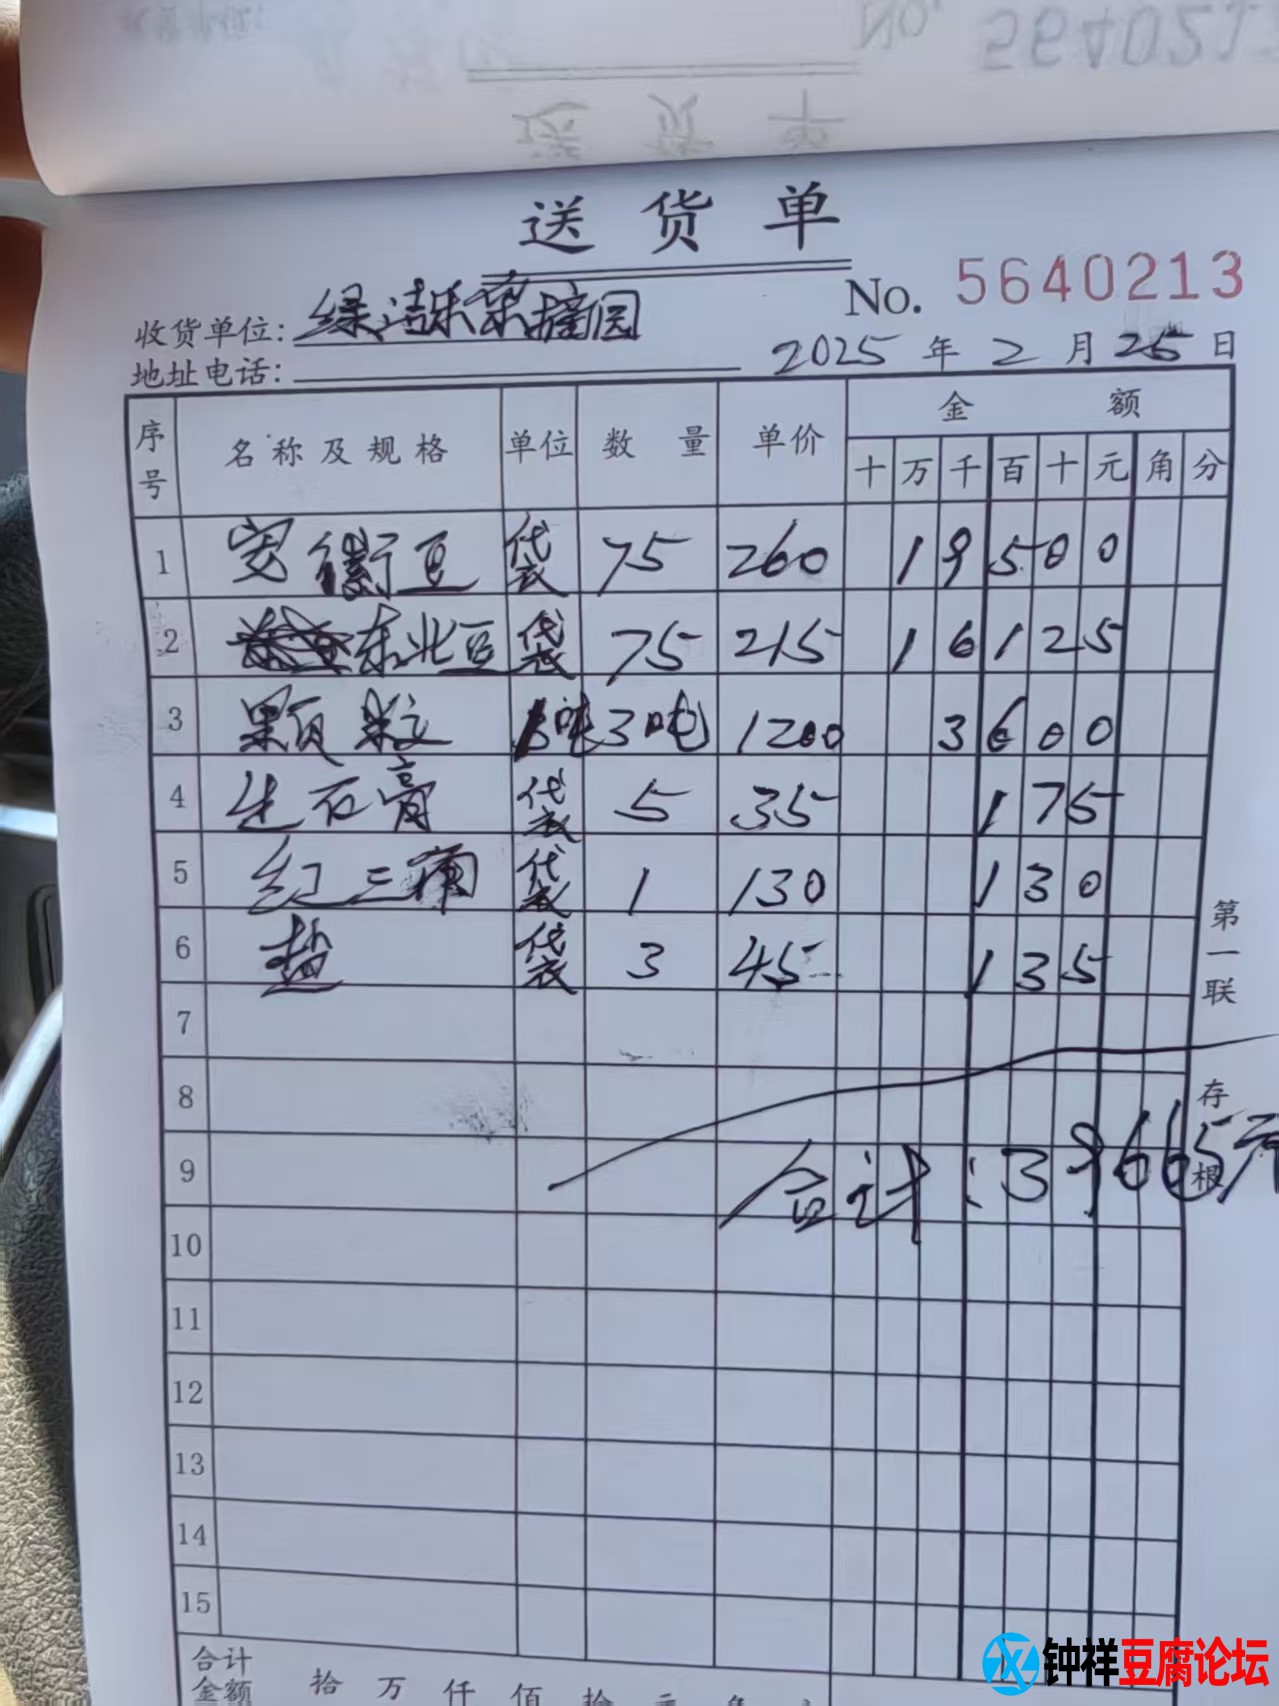 送货单
No. 5640213
收货单位: 绿洁乐采摘园
2025 年 2 月 25 日
地址电话:
序号 名称及规格 单位 数量 单价 金额
十 万 千 百 十 元 角 分
1 安徽豆 袋 75 260 19500
2 东北豆 袋 75 215 16125
3 颗粒 吨 3吨 1200 3600
4 生石膏 袋 5 35 175
5 红三 袋 1 130 130
6 盐 袋 3 45 135
7
8
9 合计:39665元
10
11
12
13
14
15
合计金额 拾 万 仟 佰 拾 元
第一联 存根
钟祥豆腐论坛